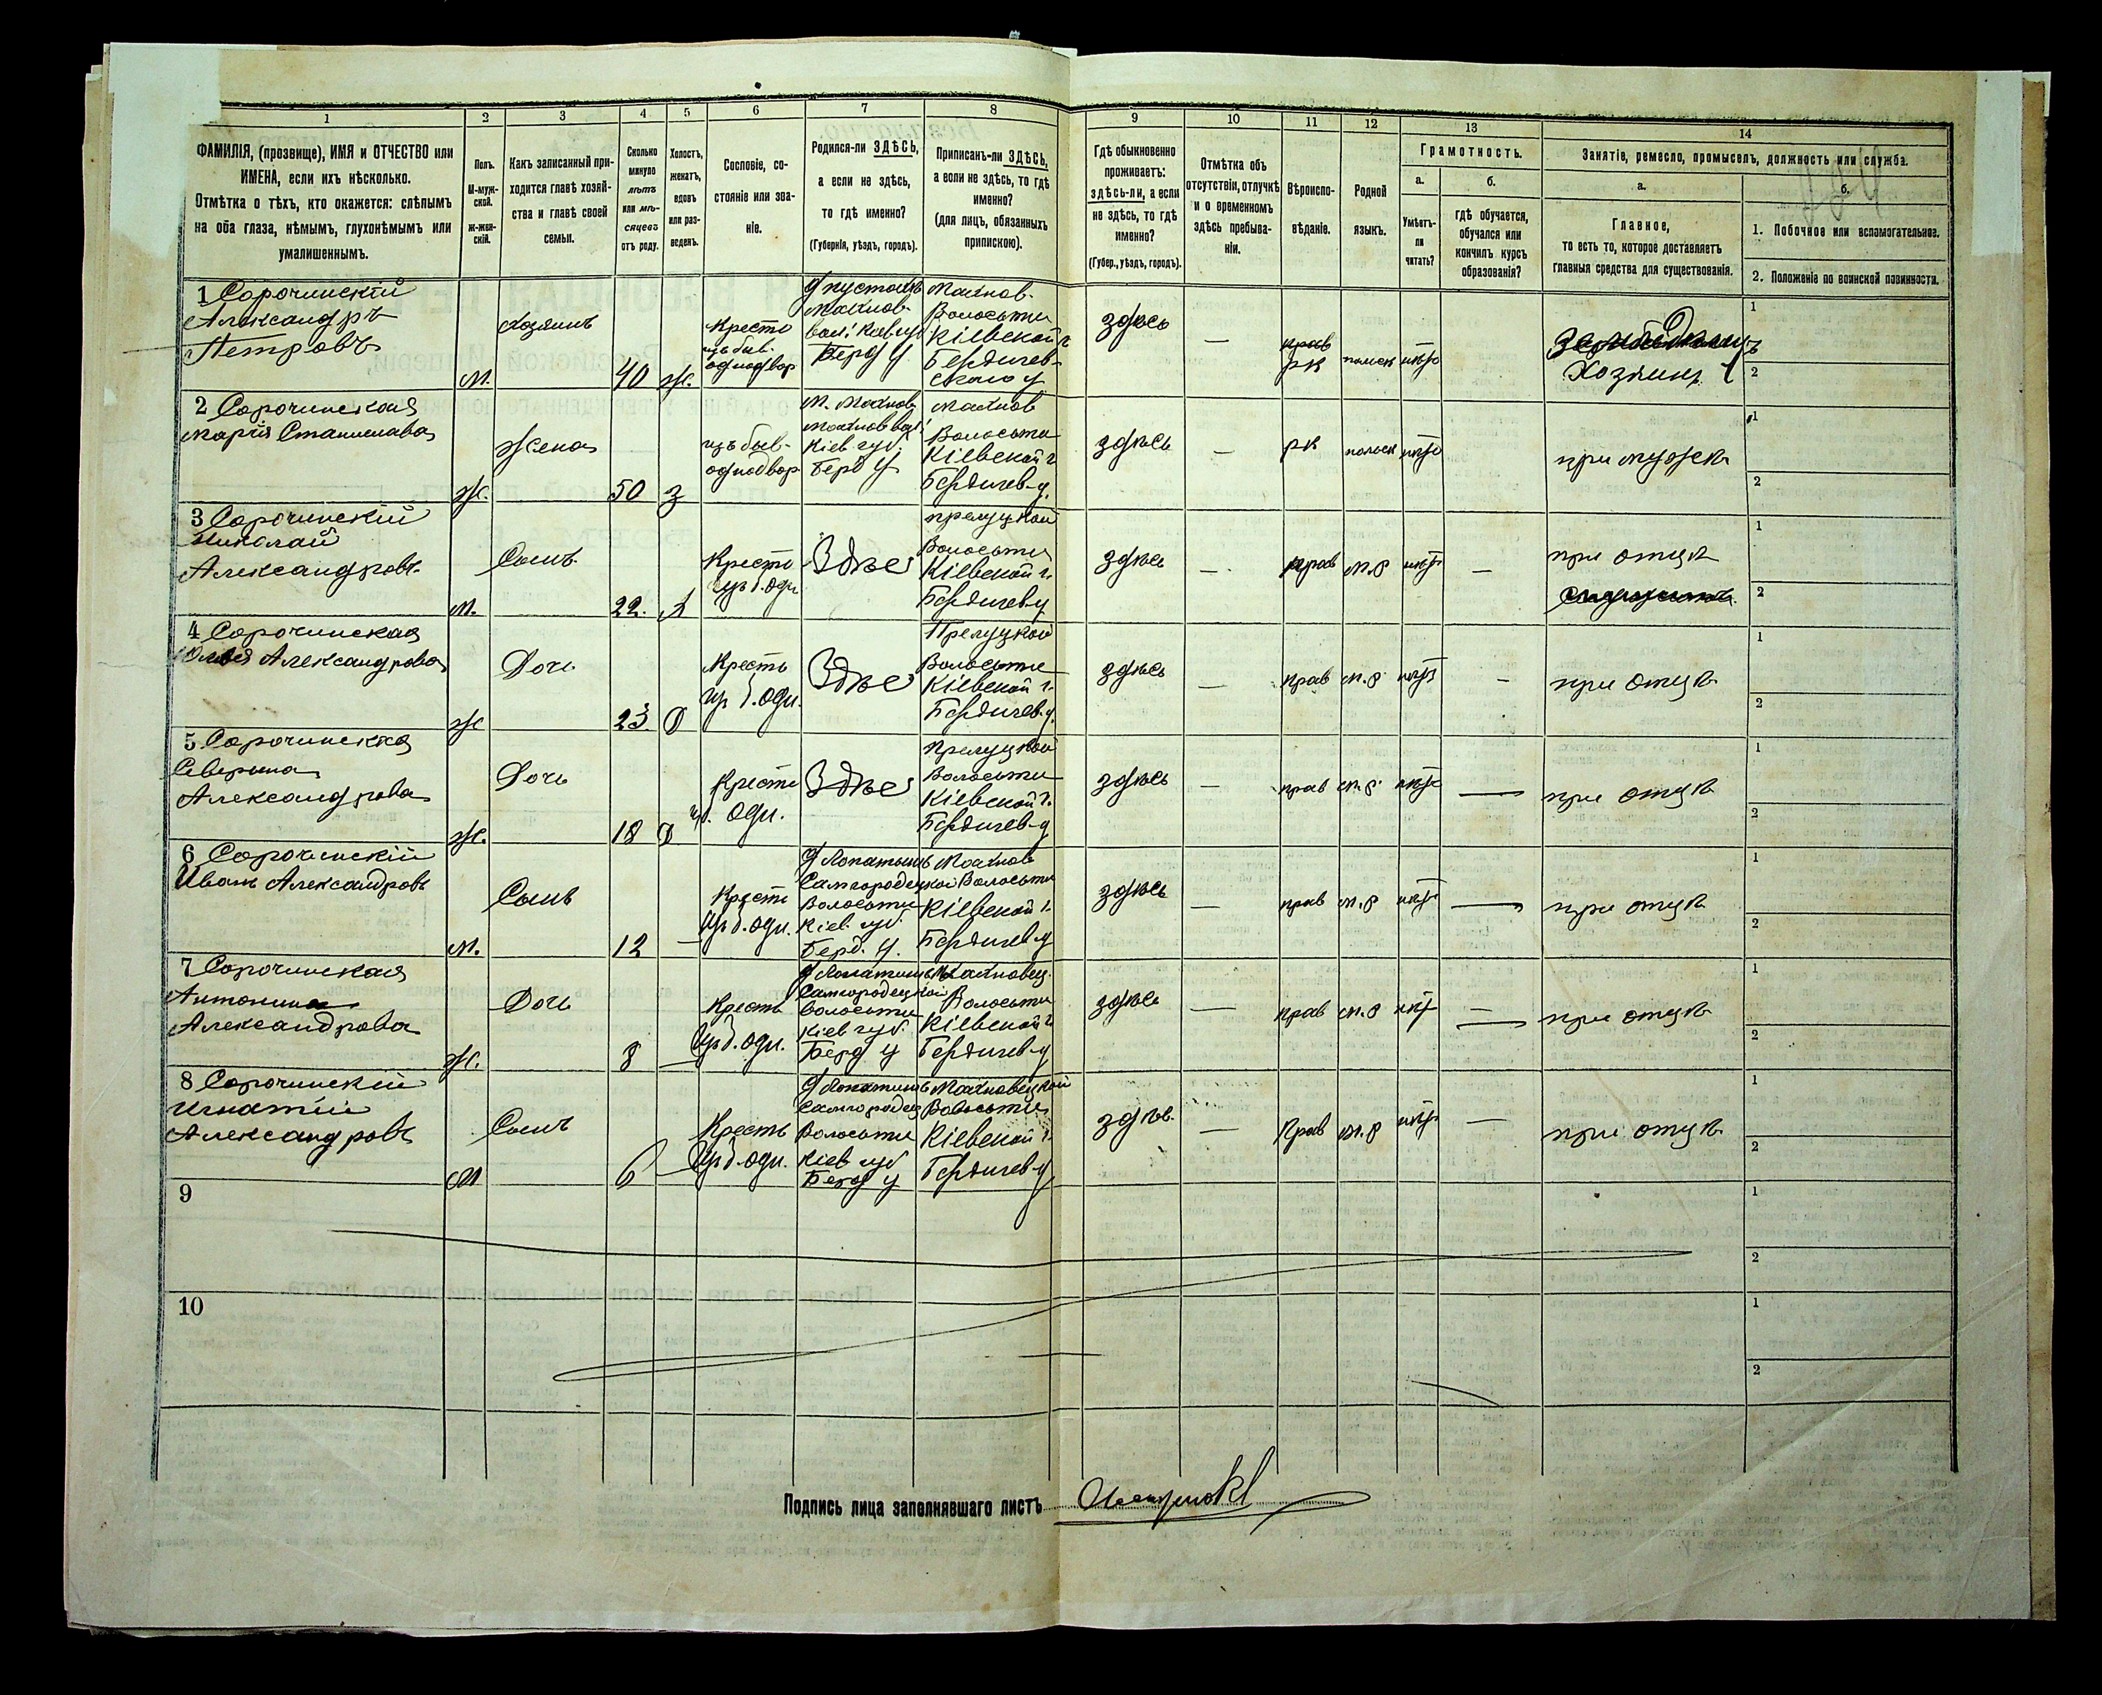 1
2
3
4
5
6
7
8
9
10
11
12
13
14
ФАМИЛІЯ, (прозвище), ИМЯ и ОТЧЕСТВО или
ИМЕНА, если ихъ нѣсколько.
Отмѣтка о тѣхъ, кто окажется: слѣпымъ
на оба глаза, нѣмымъ, глухонѣмымъ или
умалишеннымъ.
Полъ.
М-муж-
ской.
ж-жен-
скій.
Какъ записанный при-
ходится главѣ хозяй-
ства и главѣ своей
семьи.
Сколько
минуло
лѣтъ
или мѣ-
сяцевъ
отъ роду.
Холостъ,
женатъ,
вдовъ
или раз-
веденъ.
Сословіе, со-
стояніе или зва-
ніе.
Родился-ли ЗДѢСЬ,
а если не здѣсь,
то гдѣ именно?
(Губернія, уѣздъ, городъ).
Приписанъ-ли ЗДѢСЬ,
а если не здѣсь, то гдѣ
именно?
(для лицъ, обязанныхъ
припискою).
Гдѣ обыкновенно
проживаетъ:
здѣсь-ли, а если
не здѣсь, то гдѣ
именно?
(Губер., уѣздъ, городъ).
Отмѣтка объ
отсутствіи, отлучкѣ
и о временномъ
здѣсь пребыва-
ніи.
Вѣроиспо-
вѣданіе.
Родной
языкъ.
Грамотность.
а.
б.
Умѣетъ-
ли
читать?
гдѣ обучается,
обучался или
кончилъ курсъ
образованія?
Занятіе, ремесло, промыселъ, должность или служба.
а.
б.
Главное,
то есть то, которое доставляетъ
главныя средства для существованія.
1. Побочное или вспомогательное.
2. Положеніе по воинской повинности.
1 Сорочинскій
Александръ
Петровъ
м.
Хозяинъ
40
ж.
Кресто
изъ быв.
однодвор
Махнов.
Берд у
Махнов.
Волости
Кіевской г
Бердичев-
скаго у
здѣсь
—
прав
РК
польск
нѣтъ
Хозяинъ
1
2
2 Сорочинская
Марія Станиславова
Ж.
Жена
50
з
изъ быв.
однодвор
М. Махнов
Махнов вол.
Кіев губ.
Берд у
Махнов
Волости
Кіевской г
Бердичев у.
здѣсь
—
РК
польск
нѣтъ
при мужѣ
1
2
3 Сорочинскій
Николай
Александровъ
м.
Сынъ
22.
Х
Кресто
изъ б. одн
Здѣсь
Прелуцкой
Волости
Кіевской г.
Бердичев у
здѣсь
—
прав
м.р
нѣтъ
при отцѣ
1
2
4 Сорочинская
Юлія Александрова
Ж
Дочь
23.
Д
Кресть
изъ б. одн.
Здѣсь
Прелуцкой
Волости
Кіевской г.
Бердичев у.
здѣсь
—
прав
м.р.
нѣтъ
—
при отцѣ
1
2
5 Сорочинская
Северина
Александрова
Ж.
Дочь
18
Д
Кресть
одн.
Здѣсь
Прелуцкой
Волости
Кіевской г.
Бердичев у
здѣсь
—
прав
м.р.
нѣтъ
—
при отцѣ
1
2
6 Сорочинскій
Иванъ Александровъ
м.
Сынъ
12
—
Кресть
изъ б. одн.
д Лопатинъ
Самгородецкой
Волости
Кіев губ
Берд. у.
Махнов
Волости
Кіевской г.
Бердичев у
здѣсь
—
прав
м.р
нѣтъ
—
при отцѣ
1
2
7 Сорочинская
Антонина
Александрова
Ж.
Дочь
8
—
Кресть
изъ б. одн.
д Лопатинъ
Самгородецкой
Волости
Кіев губ
Берд у
Махновец.
Волости
Кіевской г
Бердичев у
здѣсь
—
прав
м.р
нѣт
—
при отцѣ
1
2
8 Сорочинскій
Игнатій
Александровъ
М
Сынъ
6
—
Кресть
изъ б. одн.
д Лопатинъ
Самгородец
Волости
Кіев губ
Берд у
Махновецкой
Волости
Кіевской г.
Бердичев у
здѣсь
—
Прав
м.р
нѣт
—
при отцѣ
1
2
9
1
2
10
1
2
Подпись лица заполнявшаго листъ